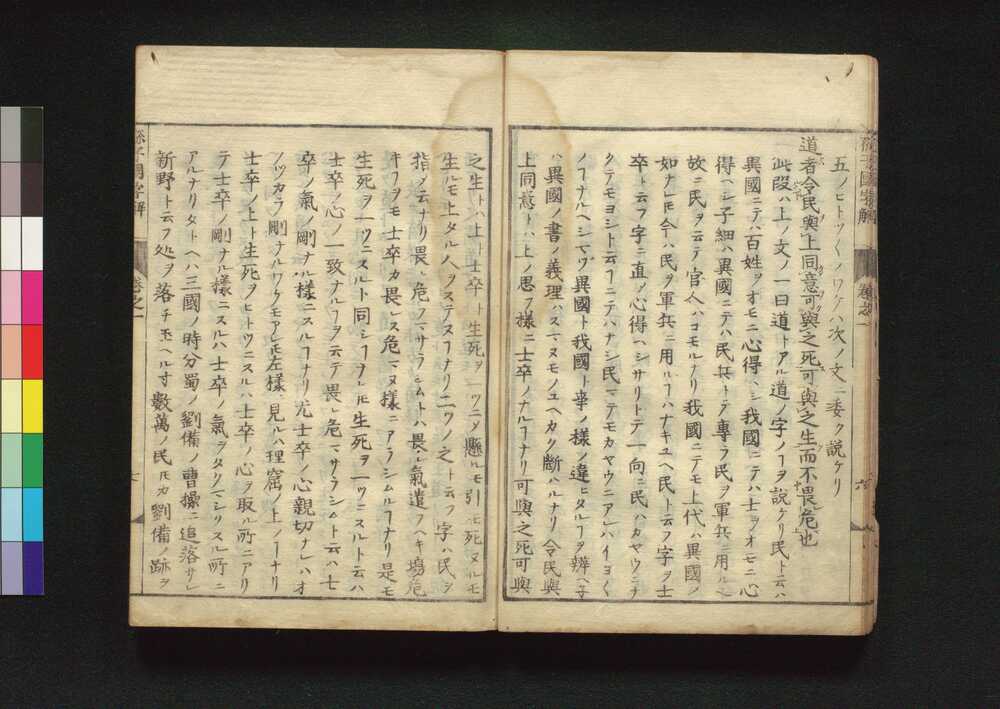 五ノヒトツ〱ノワケハ次ノ文ニ委ク説ケリ
道者令民與上同意可與之死可與之生而不畏危也
此段ハ上ノ文ノ一曰道トアル道ノ字ノヿヲ説ケリ民ト云ハ
異國ニテハ百姓ヲオモニ心得ヘシ我國ニテハ士ヲオモニ心
得ヘシ子細ハ異國ニテハ民兵トテ專ラ民ヲ軍兵ニ用ル
故ニ民ヲ云テ官人ハコモルナリ我國ニテモ上代ハ異國ノ
如ナレ𪜈今ハ民ヲ軍兵ニ用ルヿハナキユヘ民ト云フ字ヲ士
卒ト云フ字ニ直ノ心得ヘシサリトテ一向ニ民ハカヤウニナ
クテモヨシト云フニテハナシ民マテモカヤウニアレハイヨ〱
ノヿナルヘシマヅ異國ト我國ト事ノ樣ノ違ヒタルヿヲ辨ヘ子
ハ異國ノ書ノ義理ハスマヌモノユヘカク斷ハルナリ令民與
上同意トハ上ノ思フ樣ニ士卒ノナルヿナリ可與之死可與
之生トハ上ト士卒ト生死ヲ一ツニメ懸ルモ引モ死ヌルモ
生ルモ上タル人ヲステヌヿナリ二ツノ之ト云フ字ハ民ヲ
指ノ云ナリ畏レ危フマサラシムトハ畏レ氣遣フヘキ塲危
キヿヲモ士卒カ畏レス危マヌ樣ニアラシムルヿナリ是モ
生死ヲ一ツニスルト同シヿナレ𪜈生死ヲ一ツニスルト云ハ
士卒ノ心ノ一致ナルヿヲ云テ畏レ危マサラシムト云ハ士
卒ノ氣ノ剛ナル樣ニスルヿナリ尤士卒ノ心親切ナレハオ
ノツカラ剛ナルワケモアレ𪜈左樣ニ見ルハ理窟ノ上ノヿナリ
士卒ノ上ト生死ヲヒトツニスルハ士卒ノ心ヲ取ル所ニアリ
テ士卒ノ剛ナル樣ニスルハ士卒ノ氣ヲタクマシクスル所ニ
アルナリタトヘハ三國ノ時分蜀ノ劉備ノ曹操ニ追落サレ
新野ト云フ処ヲ落チ玉ヘル寸數萬ノ民𪜈カ劉備ノ跡ヲ